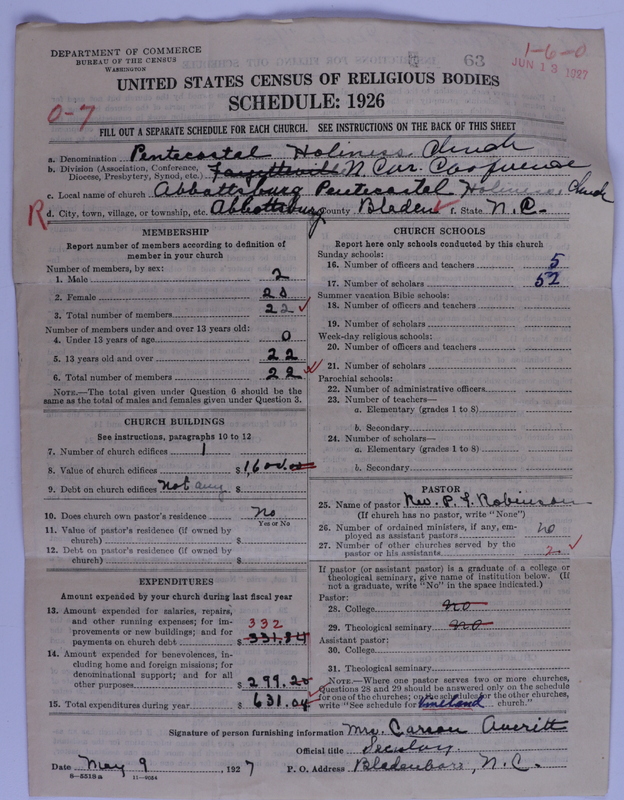 DEPARTMENT OF COMMERCE
BUREAU OF THE CENSUS
WASHINGTON
63
1-6-0
JUN 13 1927
UNITED STATES CENSUS OF RELIGIOUS BODIES
SCHEDULE: 1926
0-7
FILL OUT A SEPARATE SCHEDULE FOR EACH CHURCH. SEE INSTRUCTIONS ON THE BACK OF THIS SHEET
a. Denomination Pentecostal Holiness Church
b. Division (Association, Conference, Diocese, Presbytery, Synod, etc.) Fayetteville N. Car. Conference
c. Local name of church Abbottsburg Pentecostal Holiness Church
R d. City, town, village, or township, etc. Abbottsburg County Bladen f. State N.C.
MEMBERSHIP
Report number of members according to definition of
member in your church
Number of members, by sex:
1. Male 2
2. Female 20
3. Total number of members 22
Number of members under and over 13 years old:
4. Under 13 years of age 0
5. 13 years old and over 22
6. Total number of members 22
NOTE.—The total given under Question 6 should be
same as the total of males and females given under Question 3.
CHURCH BUILDINGS
See instructions, paragraphs 10 to 12
7. Number of church edifices 1
8. Value of church edifices $1,600.00
9. Debt on church edifices not any $
10. Does church own pastor's residence No
Yes or No
11. Value of pastor's residence (if owned by
church) $
12. Debt on pastor's residence (if owned by
church) $
EXPENDITURES
Amount expended by your church during last fiscal year
13. Amount expended for salaries, repairs,
and other running expenses; for im- 332
provements or new buildings; and for
payments on church debt $ 331.84
14. Amount expended for benevolences, in-
cluding home and foreign missions; for
denominational support; and for all
other purposes $ 299.20
15. Total expenditures during year $ 631.04
CHURCH SCHOOLS
Report here only schools conducted by this church
Sunday schools:
16. Number of officers and teachers 5
17. Number of scholars 52
Summer vacation Bible schools:
18. Number of officers and teachers
19. Number of scholars
Week-day religious schools:
20. Number of officers and teachers
21. Number of scholars
Parochial schools:
22. Number of administrative officers
23. Number of teachers—
a. Elementary (grades 1 to 8)
b. Secondary
24. Number of scholars—
a. Elementary (grades 1 to 8)
b. Secondary
PASTOR
25. Name of pastor Rev. P. L. Robinson
(If church has no pastor, write "None")
26. Number of ordained ministers, if any, em-
ployed as assistant pastors no
27. Number of other churches served by the
pastor or his assistants 2
If pastor (or assistant pastor) is a graduate of a college or
theological seminary, give name of institution below. (If
not a graduate, write "No" in the space indicated.)
Pastor:
28. College no
29. Theological seminary no
Assistant pastor:
30. College
31. Theological seminary
NOTE.—Where one pastor serves two or more churches,
Questions 28 and 29 should be answered only on the schedule
for one of the churches; on the schedules for the other churches,
write "See schedule for church."
Signature of person furnishing information Mrs. Carson Averitt
Official title Secretary.
Date May 9, 1927 P. O. Address Bladenboro, N.C.
8—5519 a 11—9034